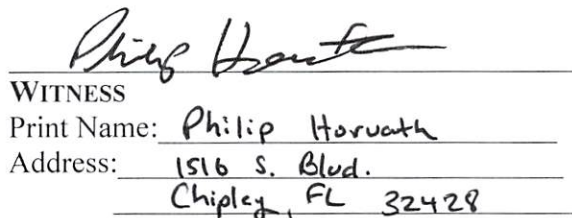 Philip Horvath
WITNESS
Print Name: Philip Horvath
Address: 1516 S. Blvd.
Chipley, FL 32428